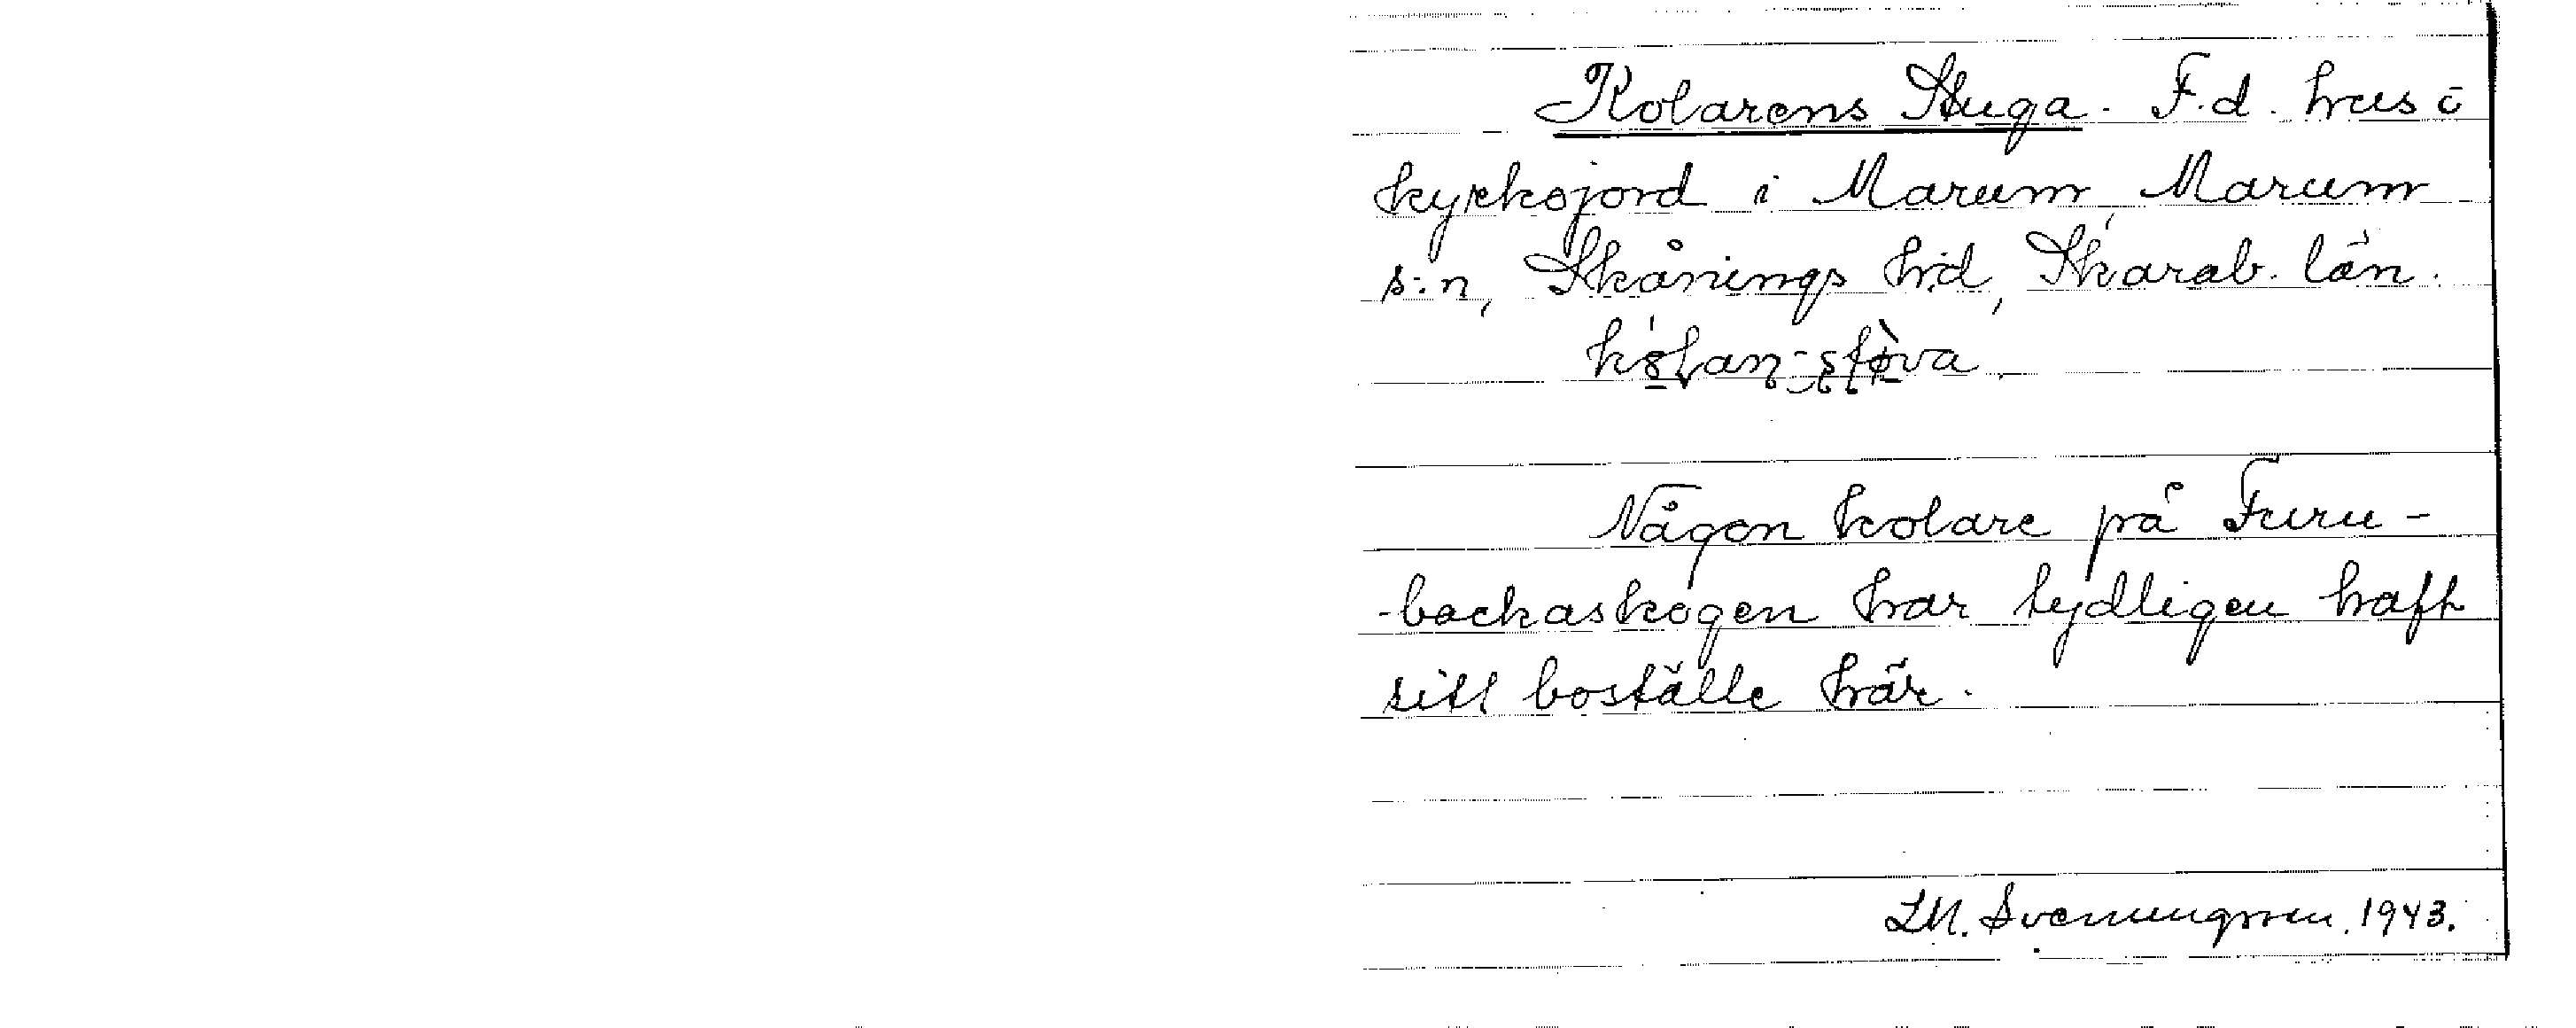 Kolarens Stuga. F.d. hus å
kyrkojord i Marum, Marum
s:n, Skånings h:d, Skarab. län.
Någon kolare på Furu-
-backaskogen har tydligen haft
sitt boställe här.
L.M. Svenungsson. 1943.